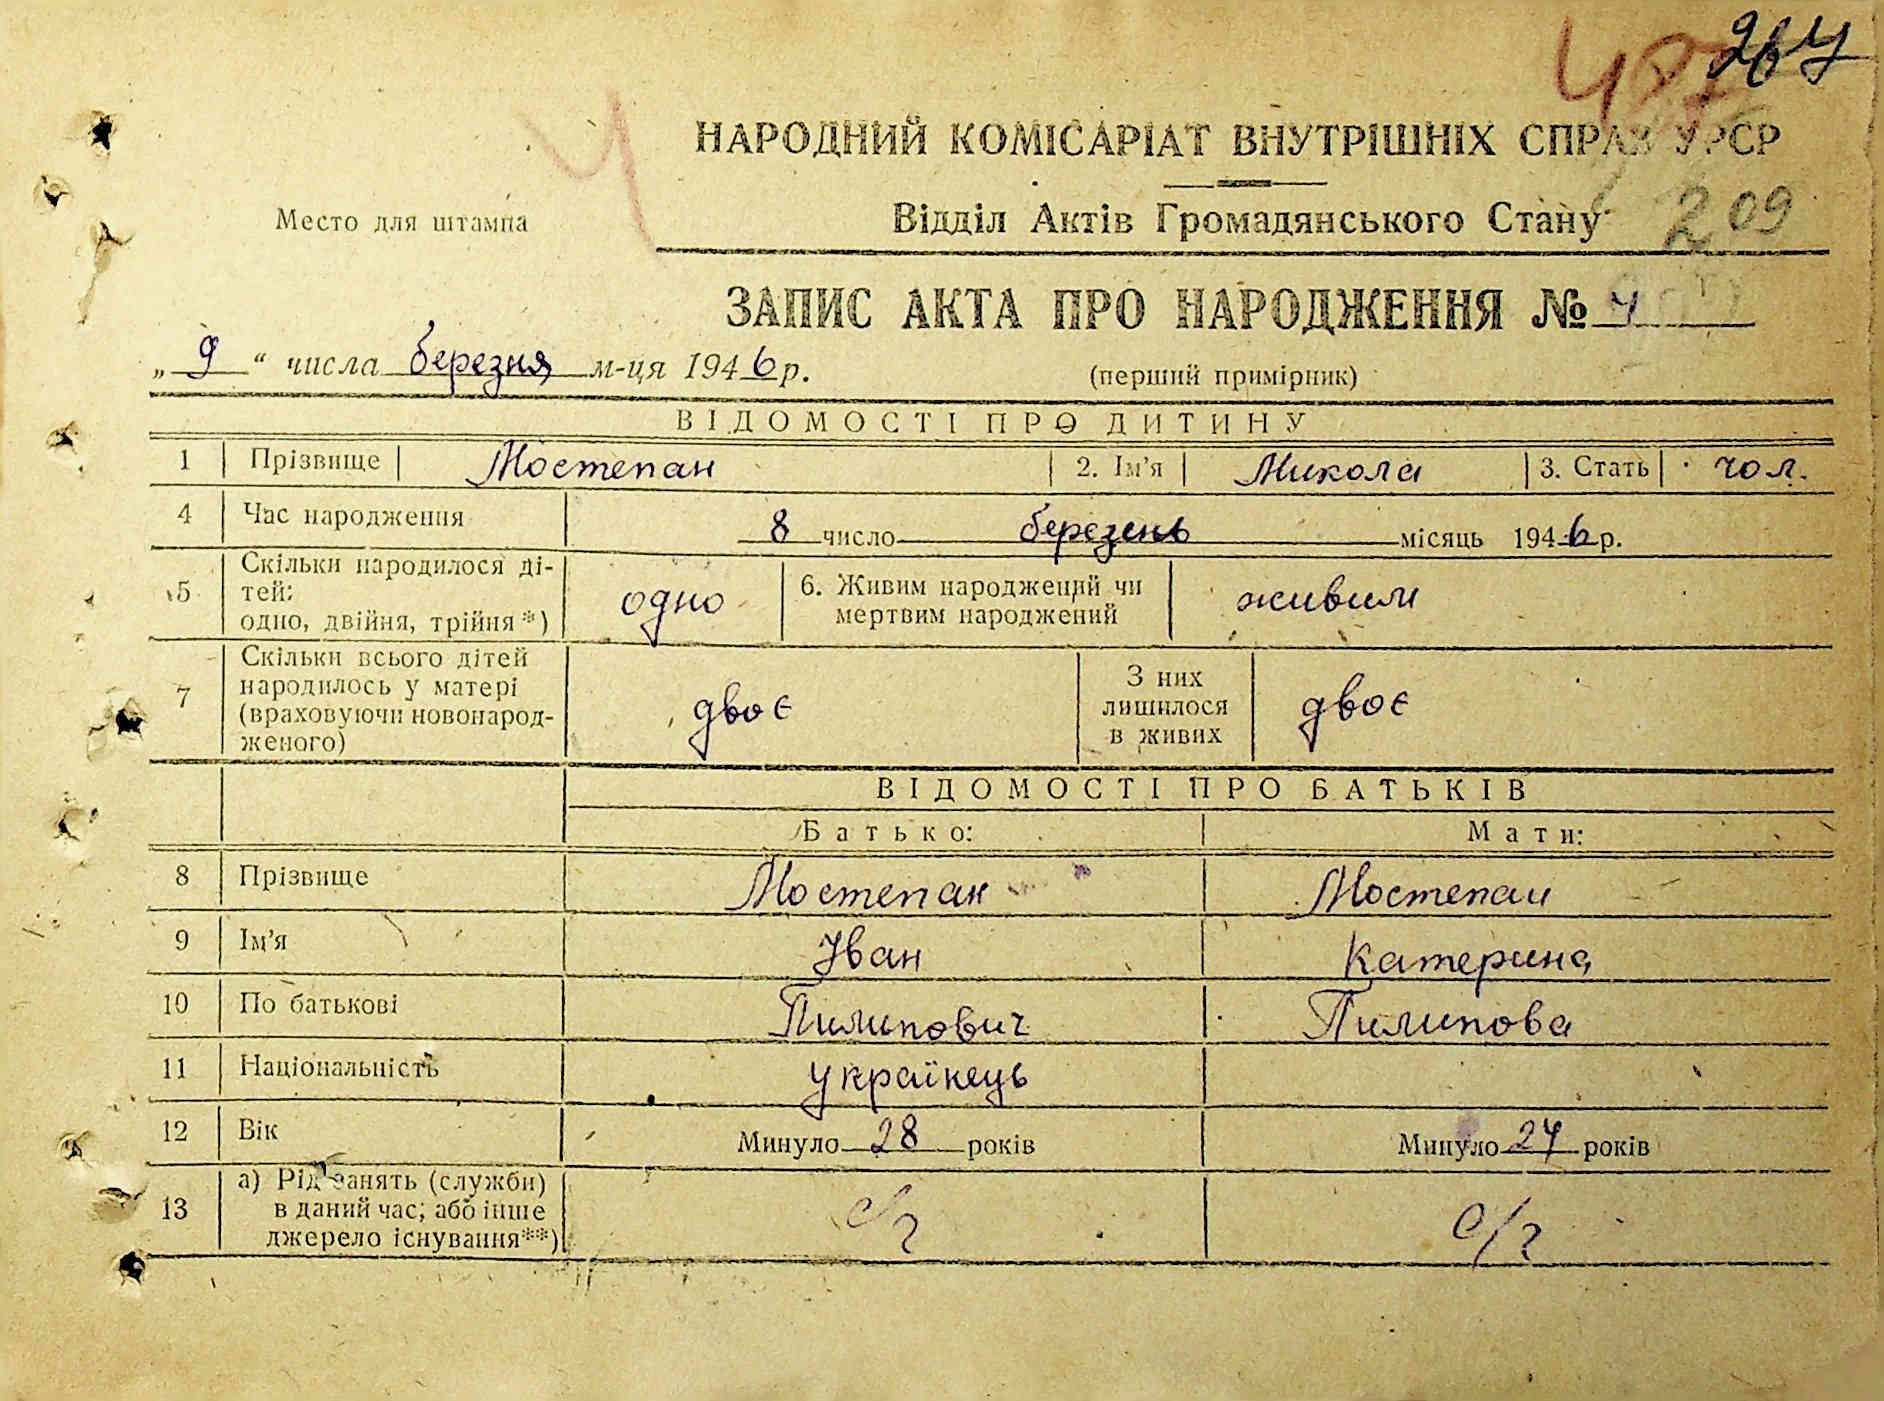 264
НАРОДНИЙ КОМІСАРІАТ ВНУТРІШНІХ СПРАВ УРСР
Место для штампа
Відділ Актів Громадянського Стану
209
ЗАПИС АКТА ПРО НАРОДЖЕННЯ № 4
„ 9 “ числа березня м-ця 1946 р.
(перший примірник)
ВІДОМОСТІ ПРО ДИТИНУ
1 Прізвище Мостепан 2. Ім'я Микола 3. Стать чол.
4 Час народження 8 число березень місяць 1946 р.
5 Скільки народилося ді-
тей:
одно, двійня, трійня*) одно 6. Живим народжений чи
мертвим народжений живим
7 Скільки всього дітей
народилось у матері
(враховуючи новонарод-
женого) двоє З них
лишилося
в живих двоє
ВІДОМОСТІ ПРО БАТЬКІВ
Батько: Мати:
8 Прізвище Мостепан Мостепан
9 Ім'я Іван Катерина
10 По батькові Пилипович Пилипова
11 Національність українець
12 Вік Минуло 28 років Минуло 27 років
13 а) Рід занять (служби)
в даний час; або інше
джерело існування**) с/г с/г